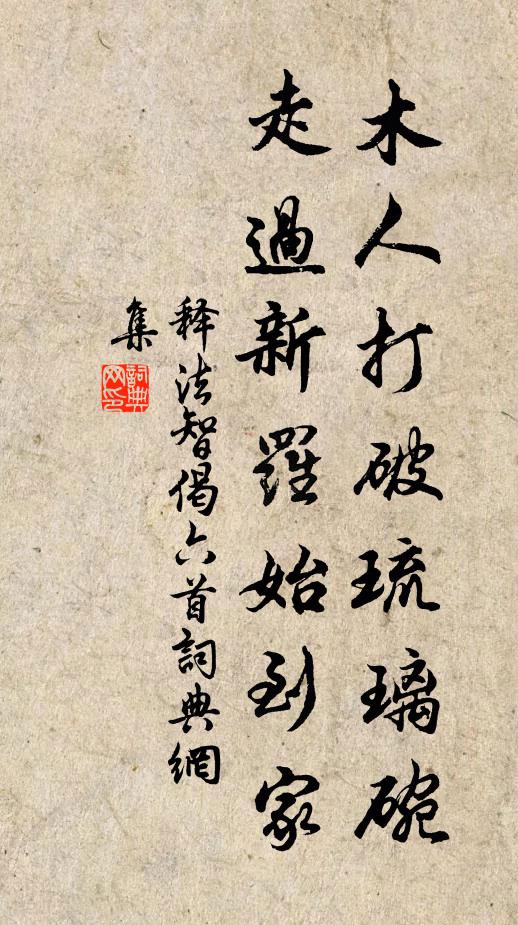 木人打破琉璃碗
走過新羅始到家
释法智偈六首詞典網
集
詞典
网印